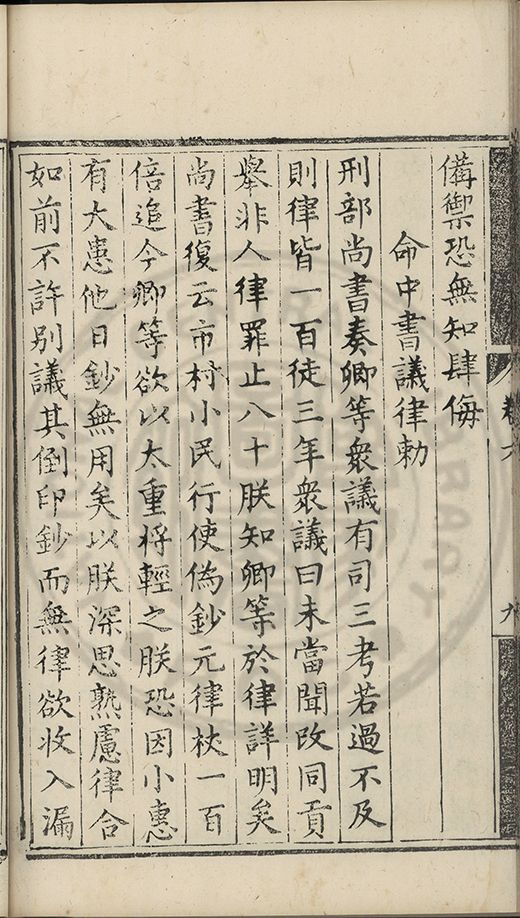 備禦恐無知肆侮
命中書議律勅
刑部尚書奏卿等衆議有司三考若過不及
則律皆一百徒三年衆議曰未當聞改同貢
舉非人律罪止八十朕知卿等於律詳明矣
尚書復云市村小民行使偽鈔元律杖一百
倍追今卿等欲以太重將輕之朕恐因小惠
有大患他日鈔無用矣以朕深思熟慮律合
如前不許別議其倒印鈔而無律欲收入漏
卷六
九